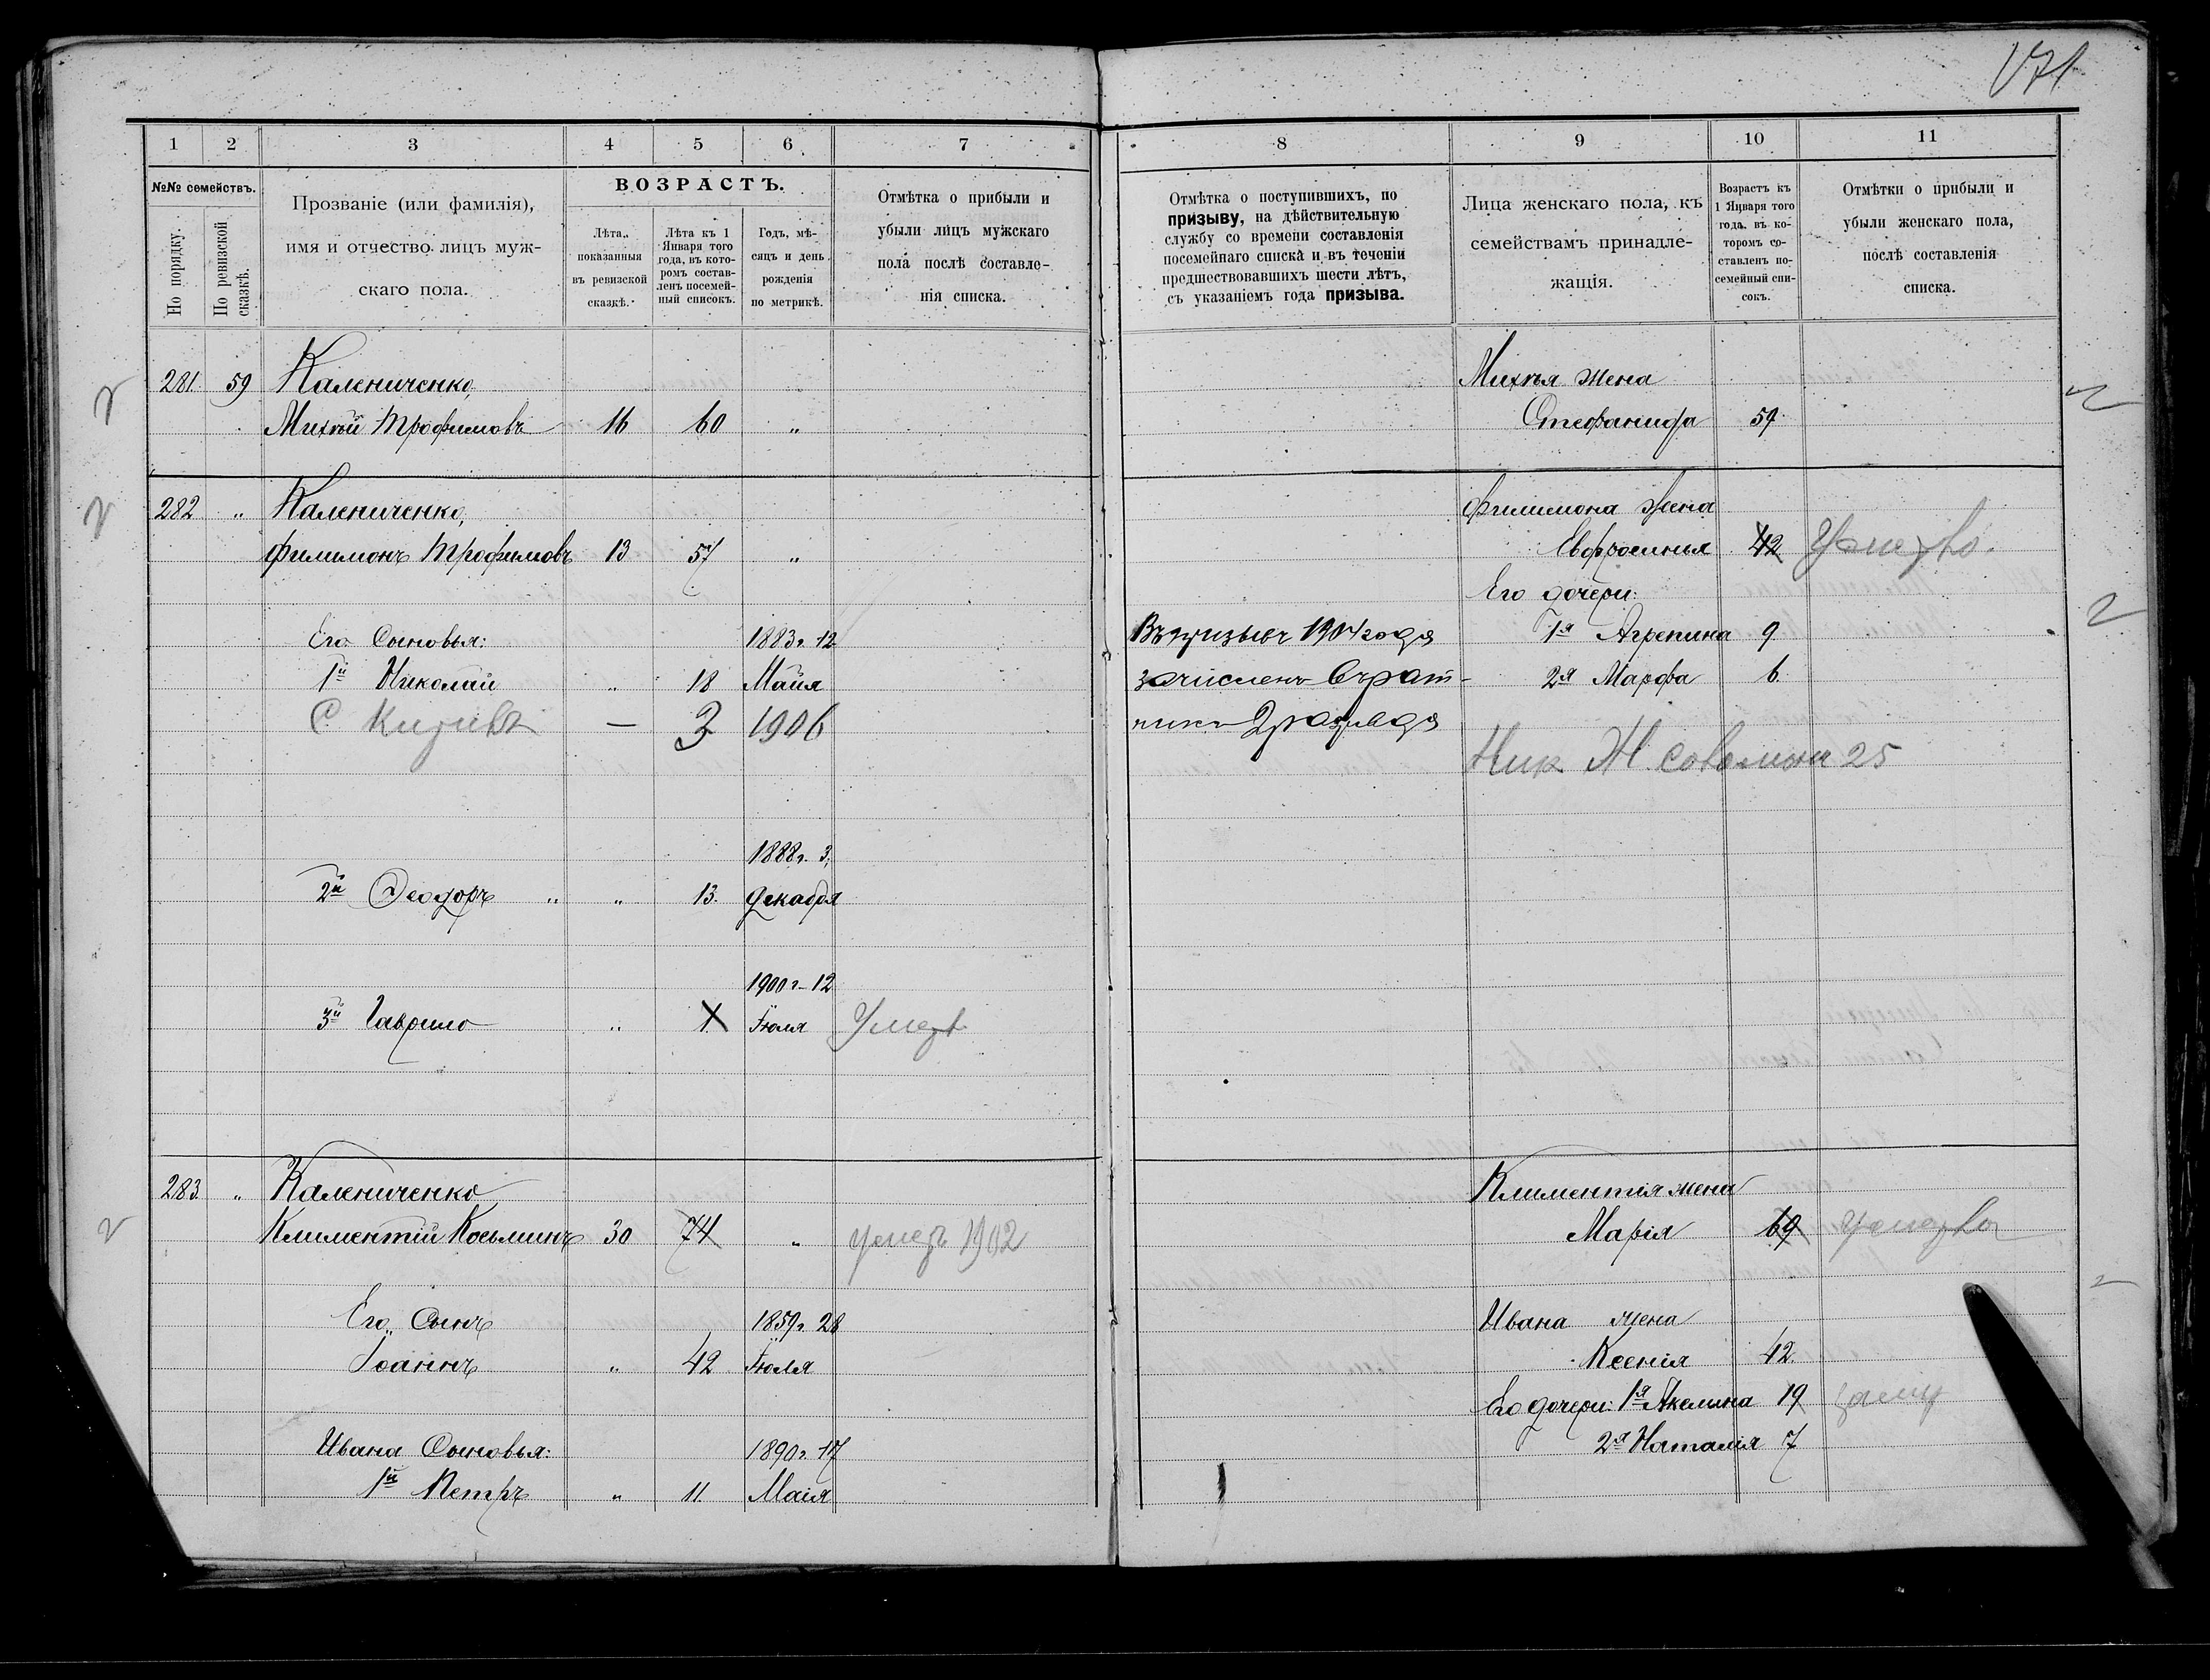 171
1 2 3 4 5 6 7
№№ семействъ.
По порядку.
По ревизской сказкѣ.
Прозваніе (или фамилія),
имя и отчество лицъ муж-
скаго пола.
ВОЗРАСТЪ.
Лѣта,
показанныя
въ ревизской
сказкѣ.
Лѣта къ 1
Января того
года, въ кото-
ромъ состав-
ленъ посемей-
ный списокъ.
Годъ, мѣ-
сяцъ и день
рожденія
по метрикѣ.
Отмѣтка о прибыли и
убыли лицъ мужскаго
пола послѣ составле-
нія списка.
281. 59 Калениченко,
Михѣй Трофимовъ 16 60 „
282 „ Калениченко,
Филимонъ Трофимовъ 13 57 „
Его Сыновья: 1883 г. 12
1й Николай „ 18 Майя
С — 3 1906
1888 г. 3,
2й Феодоръ „ „ 13. Декабря
1900 г. 12
3й Гаврило „ 1. Іюля Умеръ
283. „ Калениченко
Климентій Косьминъ 30 74 „ умеръ 1902
Его Сынъ 1859 г. 28
Іоаннъ „ 42 Іюля
Ивана Сыновья: 1890 г. 17
1й Петръ „ 11. Маія
8 9 10 11
Отмѣтка о поступившихъ, по
призыву, на дѣйствительную
службу со времени составленія
посемейнаго списка и въ теченіи
предшествовавшихъ шести лѣтъ,
съ указаніемъ года призыва.
Лица женскаго пола, къ
семействамъ принадле-
жащія.
Возрастъ къ
1 Января того
года, въ ко-
торомъ со-
ставленъ по-
семейный спи-
сокъ.
Отмѣтки о прибыли и
убыли женскаго пола,
послѣ составленія
списка.
Михѣя жена
Стефанида 59.
Филимона жена
Евфросинья 42 Умерла.
Его дочери:
Въ призывъ 1904 года 1я Агрепина 9
зачисленъ въ рат- 2я Марфа 6.
ники 2 разряда
Ник Ж 25
Климентія жена
Марія 69 умерла
Ивана жена
Ксенія 42.
Его дочери: 1я Акелина 19 замуж
2я Наталія 7